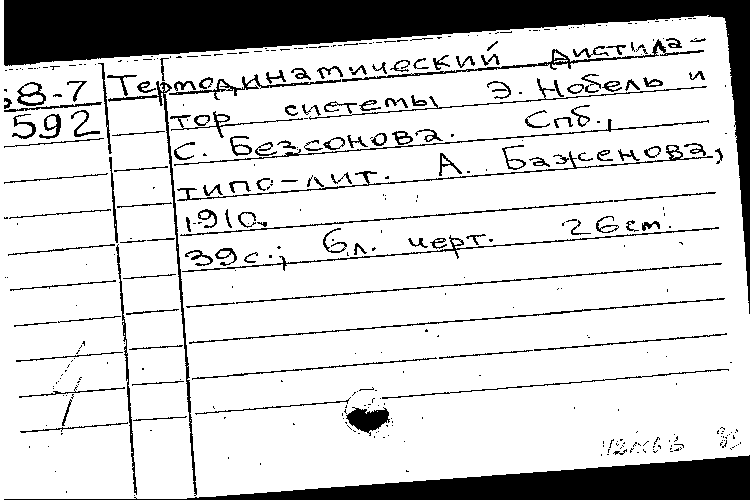 68-7
592
Термодинамический дистила-
тор системы Э. Нобель и
С. Безсонова. Спб.,
типо-лит. А. Баженова,
1910.
39с.; 6л. черт. 26см.